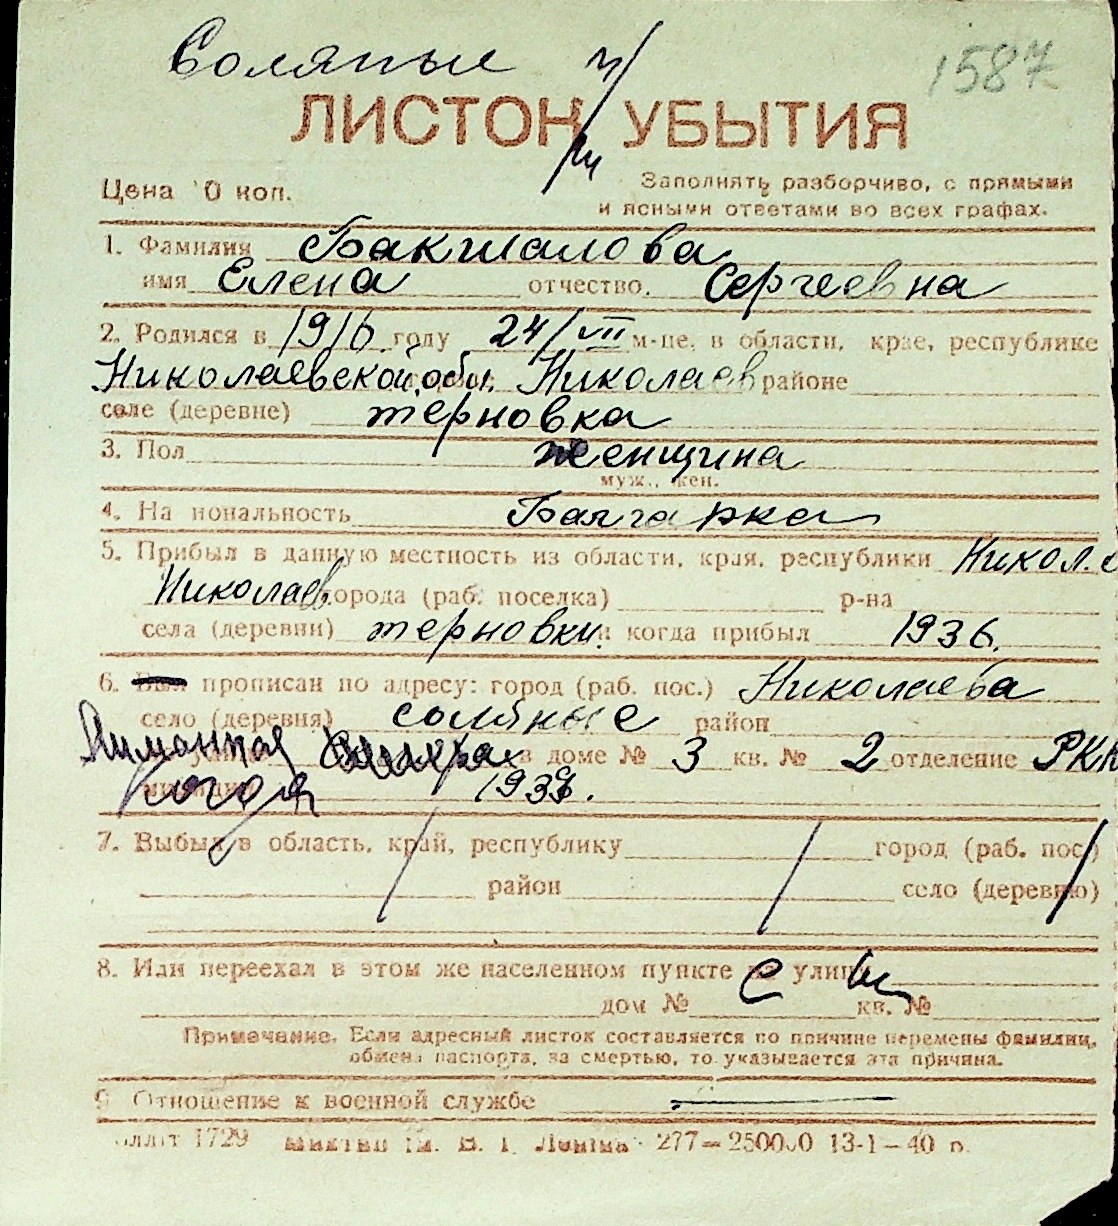 Соляные
1587
ЛИСТОК УБЫТИЯ
Цена 10 коп. Заполнять разборчиво, с прямыми
и ясными ответами во всех графах.
1. Фамилия Бакшалова
имя Елена отчество Сергеевна
2. Родился в 1916 году 24/VII м-це, в области, крае, республике
Николаевской обл. Николаев районе
селе (деревне) терновка
3. Пол женщина
муж., жен.
4. Национальность Балгарка
5. Прибыл в данную местность из области, края, республики Никол.
Николаев. города (раб. поселка) р-на
села (деревни) терновки и когда прибыл 1936.
6. Был прописан по адресу: город (раб. пос.) Николаева
село (деревня) солёные район
Лиманная в доме № 3 кв. № 2 отделение РКМ
милиции когда 1939.
7. Выбыл в область, край, республику город (раб. пос.)
район село (деревню)
8. Или переехал в этом же населенном пункте на улицу
дом № кв. №
Примечание. Если адресный листок составляется по причине перемены фамилии,
обмена паспорта, за смертью, то указывается эта причина.
9. Отношение к военной службе
1729 В. І. Леніна 277—250000 13-1—40 р.